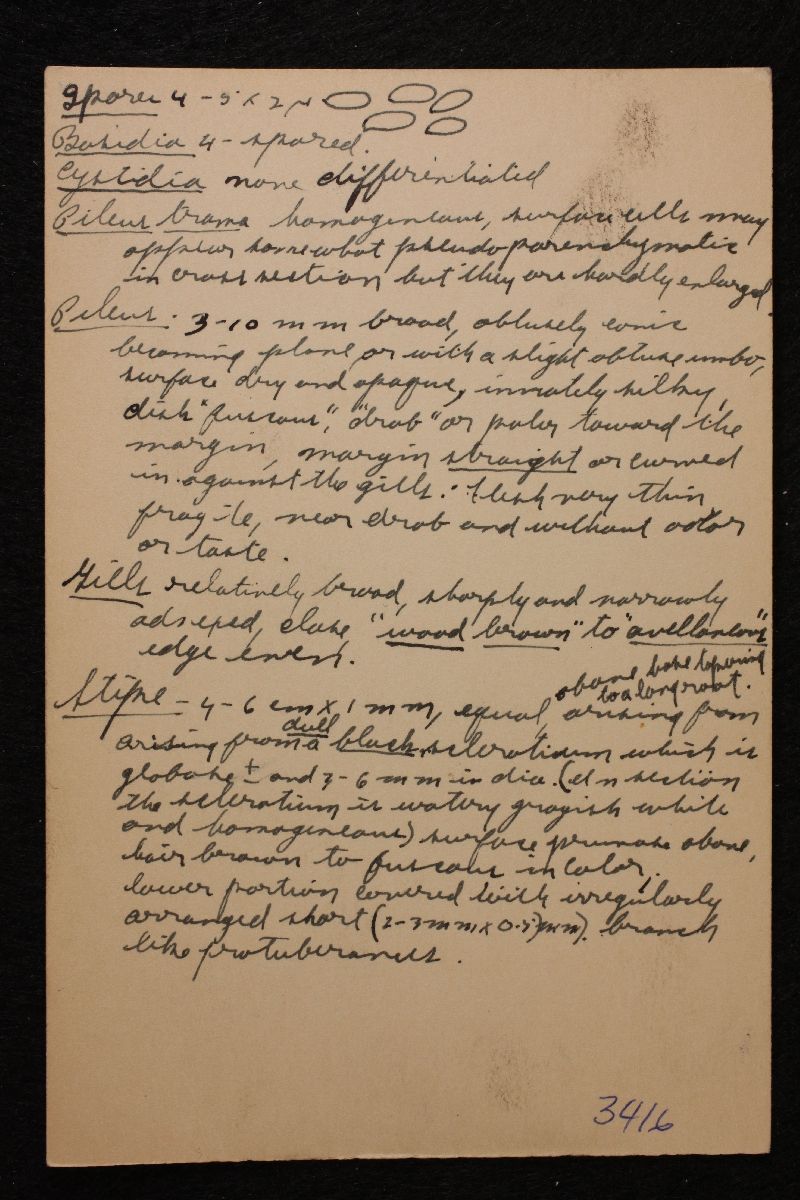 Spores 4-5 x 2 µ
Basidia 4-spored.
Cystidia none differentiated
Pileus trama homogeneous, surface cells may
appear somewhat pseudoparenchymatic
in cross section but they are hardly enlarged.
Pileus. 3-10 mm broad, obtusely conic
becoming plane or with a slight obtuse umbo,
surface dry and opaque, innately silky,
disk "fuscous", "drab" or paler toward the
margin, margin straight or curved
in against the gills. flesh very thin,
fragile, near drab and without odor
or taste.
Gills relatively broad, sharply and narrowly
adnexed, close, "wood brown" to "avellaneous"
edge even.
above base tapering
to a long root.
Stipe - 4-6 cm x 1 mm, equal, arising from
dull
arising from a black sclerotium which is
globose ± and 3-6 mm in dia. (In section
the sclerotium is watery grayish white
and homogeneous) surface pruinose above,
hair brown to fuscous in color,
lower portion covered with irregularly
arranged short (2-3 mm x 0.5 mm). branch
like protuberances.
3416